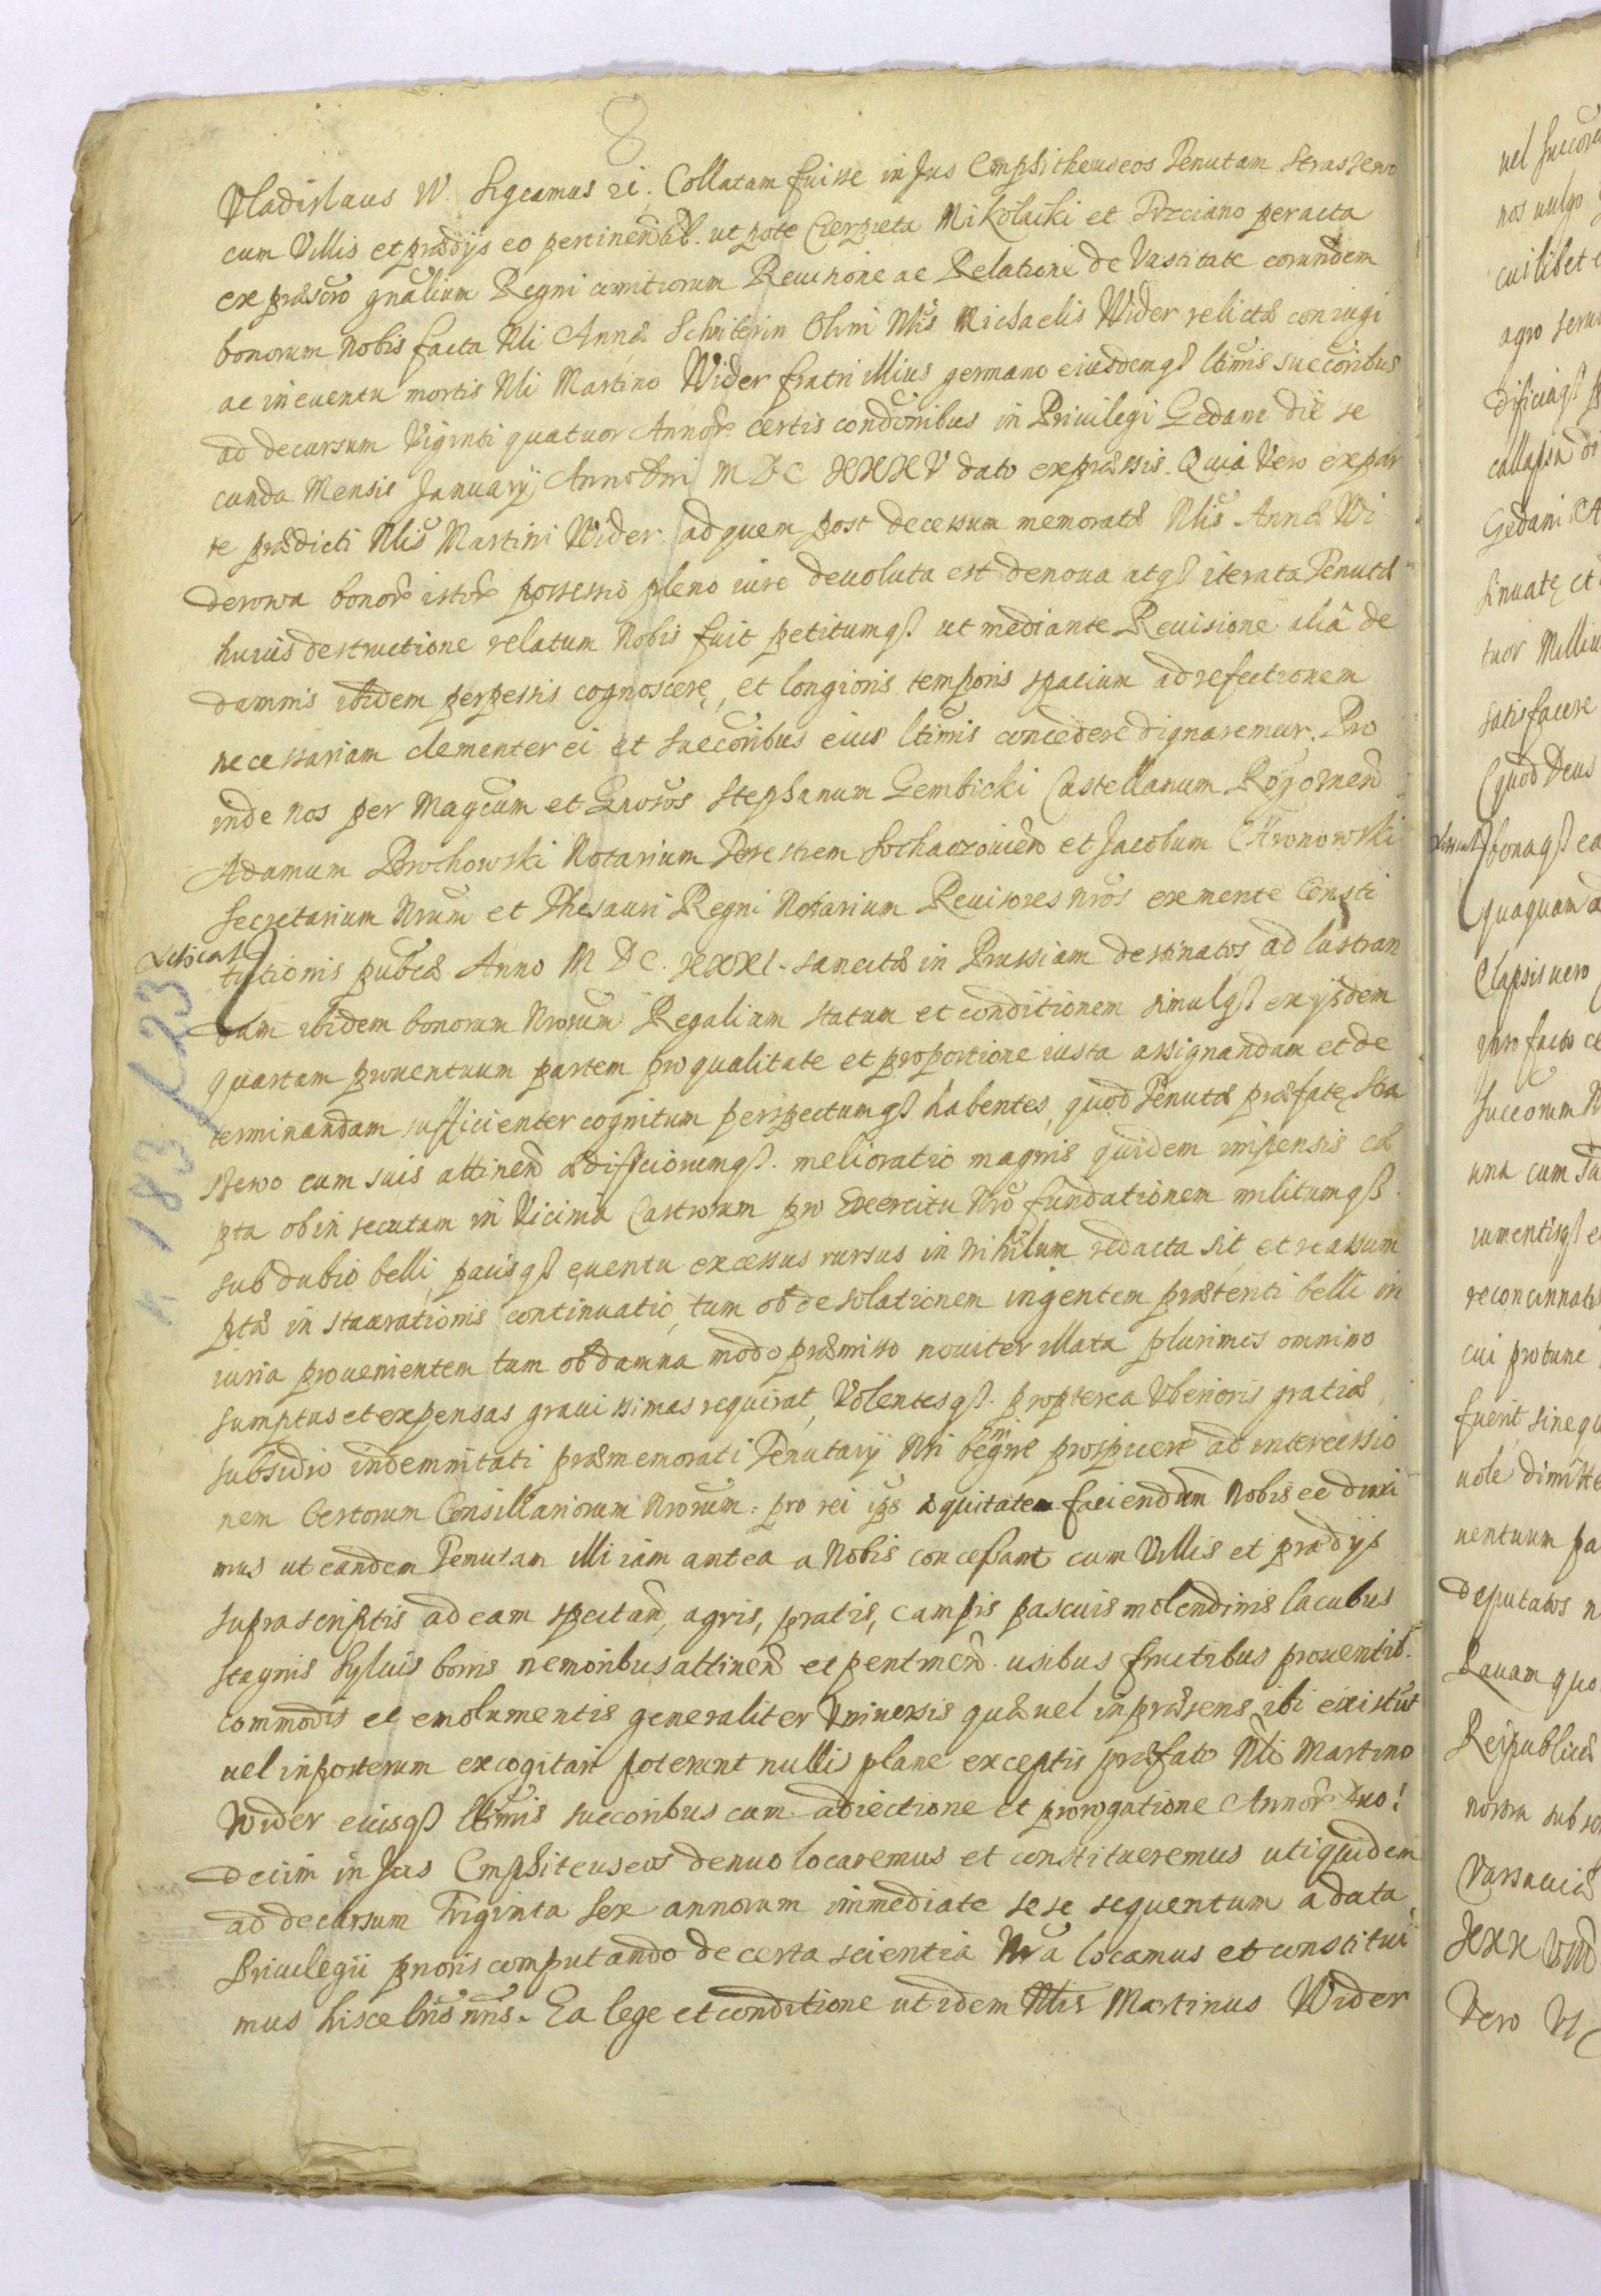 8
Vladislaus IV. Sigcamus ei, Collatam fuisse in Jus Emphitheuseos Tenutam Strassewo
cum Villis et prædijs eo pertinen̄ib. ut pote Cierpieta Mikołaiki et Trzciano peracta
ex præscr̃o gñalium Regni comitiorum Reuisione ac Relatione de Vastitate eorundem
bonorum Nobis facta Nli Annæ Schniterin Olim Nlis Michaelis Wider relictæ coniugi
ac in euentu mortis Nli Martino Wider fratri illius germano eiusdemq̃ ltimis succoribus
ad decursum Viginti quatuor Annor̃ certis condõnibus in Priuilegi Gedani die se
cunda Mensis January Anno Dni M D C XXXV dato expræssis. Quia Vero ex par
te prædicti Nlis Martini Wider ad quem post decessum memoratæ Nlis Annæ Wi
derowa bonor̃ istor̃ possessio pleno iure deuoluta est denoua atq̃ iterata Tenutæ
huius destructione relatum Nobis fuit petitumq̃ ut mediante Reuisione aliâ de
damnis ibidem perpessis cognoscere, et longioris temporis spatium ad refectionem
necessariam clementer ei et succoribus eius ltimis concedere dignaremur. Pro
inde nos per Magcum et Grosos Stephanum Gembicki Castellanum Rogoznen̄
Adamum Brochowski Notarium Terestrem Sochaczouien̄ et Jacobum Chronowski
Secretarium Nrum et Thesauri Regni Notarium Reuisores nros ex mente Consti
tutionis pubcæ Anno M D C. XXXI. sancitæ in Prussiam destinatos, ad lustran
dum ibidem bonorum Nrorum Regalium statum et conditionem simulq̃ ex ijsdem
quartam prouentuum partem pro qualitate et proportione iusta assignandam et de
terminandam sufficienter cognitum perspectumq̃ habentes, quod Tenutæ præfatę Stra
ssewo cum suis attinen̄ ædificiorumq̃. melioratio magnis quidem impensis cæ
pta ob in secutam in Vicinia Castrorum pro Exercitu Nro fundationem militumq̃.
sub dubio belli, pacisq̃ euentu excessus rursus in nihilum redacta sit, et reassum
ptæ in staurationis continuatio, tum ob desolationem ingentem præteriti belli in
iuria prouenientem tum ob damna modo præmisso nouiter illata plurimos omnino
sumptus et expensas grauissimas requirat, Volentesq̃. propterea Vberioris gratiæ
subsidio indemnitati præmemorati Tenutarij Nri begne prospicere ad intercessio
nem Certorum Consiliariorum Nrorum: pro rei ips æquitatem faciendum Nobis ee duxi
mus ut eandem Tenutam illi iam antea a Nobis concessam cum Villis et prædijs
suprascriptis ad eam spectan̄, agris, pratis, campis pascuis molendinis lacubus
stagnis Syluis borris nemoribus attinen̄ et pentinen̄. usibus fructibus prouentib.
commodis et emolumentis generaliter Vniuersis quæ uel in præsens ibi existut
uel in posterum excogitari poterunt nullis plane exceptis præfato Nli Martino
Wider eiusq̃ ltimis succoribus cum adiectione et prorogatione Annor̃ Duo!
decim in Jus Emphiteuseos denuo locaremus et constitueremus uti quidem
ad decursum Triginta sex annorum immediate sese sequentum a data
Priuilegii prioris computando de certa scientia Nra locamus et constitui
mus hisce lris nris. Ea lege et conditione ut idem Nlis Martinus Wider
183/23
uel succor
nos uulgo
cuilibet
agro seru
dificiaq̃
collapsa di
Gedani A
sinuatę et
tuor Milliu
satisfacere
(quod Deus
bonaq̃ ea
quaquam a
Elapsis uero
ipso facto ce
succorum N
una cum
iumentisq̃ e
reconcinnatis
cui pro tunc
fuerit, sine qu
uole dimitte
uentuum pa
deputatos n
Rauam quo
Reipublicæ
nostra sub
Varsauiæ
XXX VIII
Vero Vl